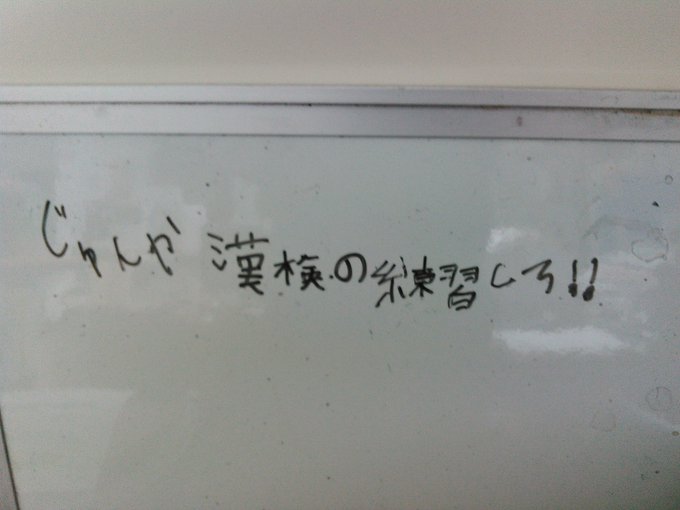 じゅんか 漢検の練習しろ!!